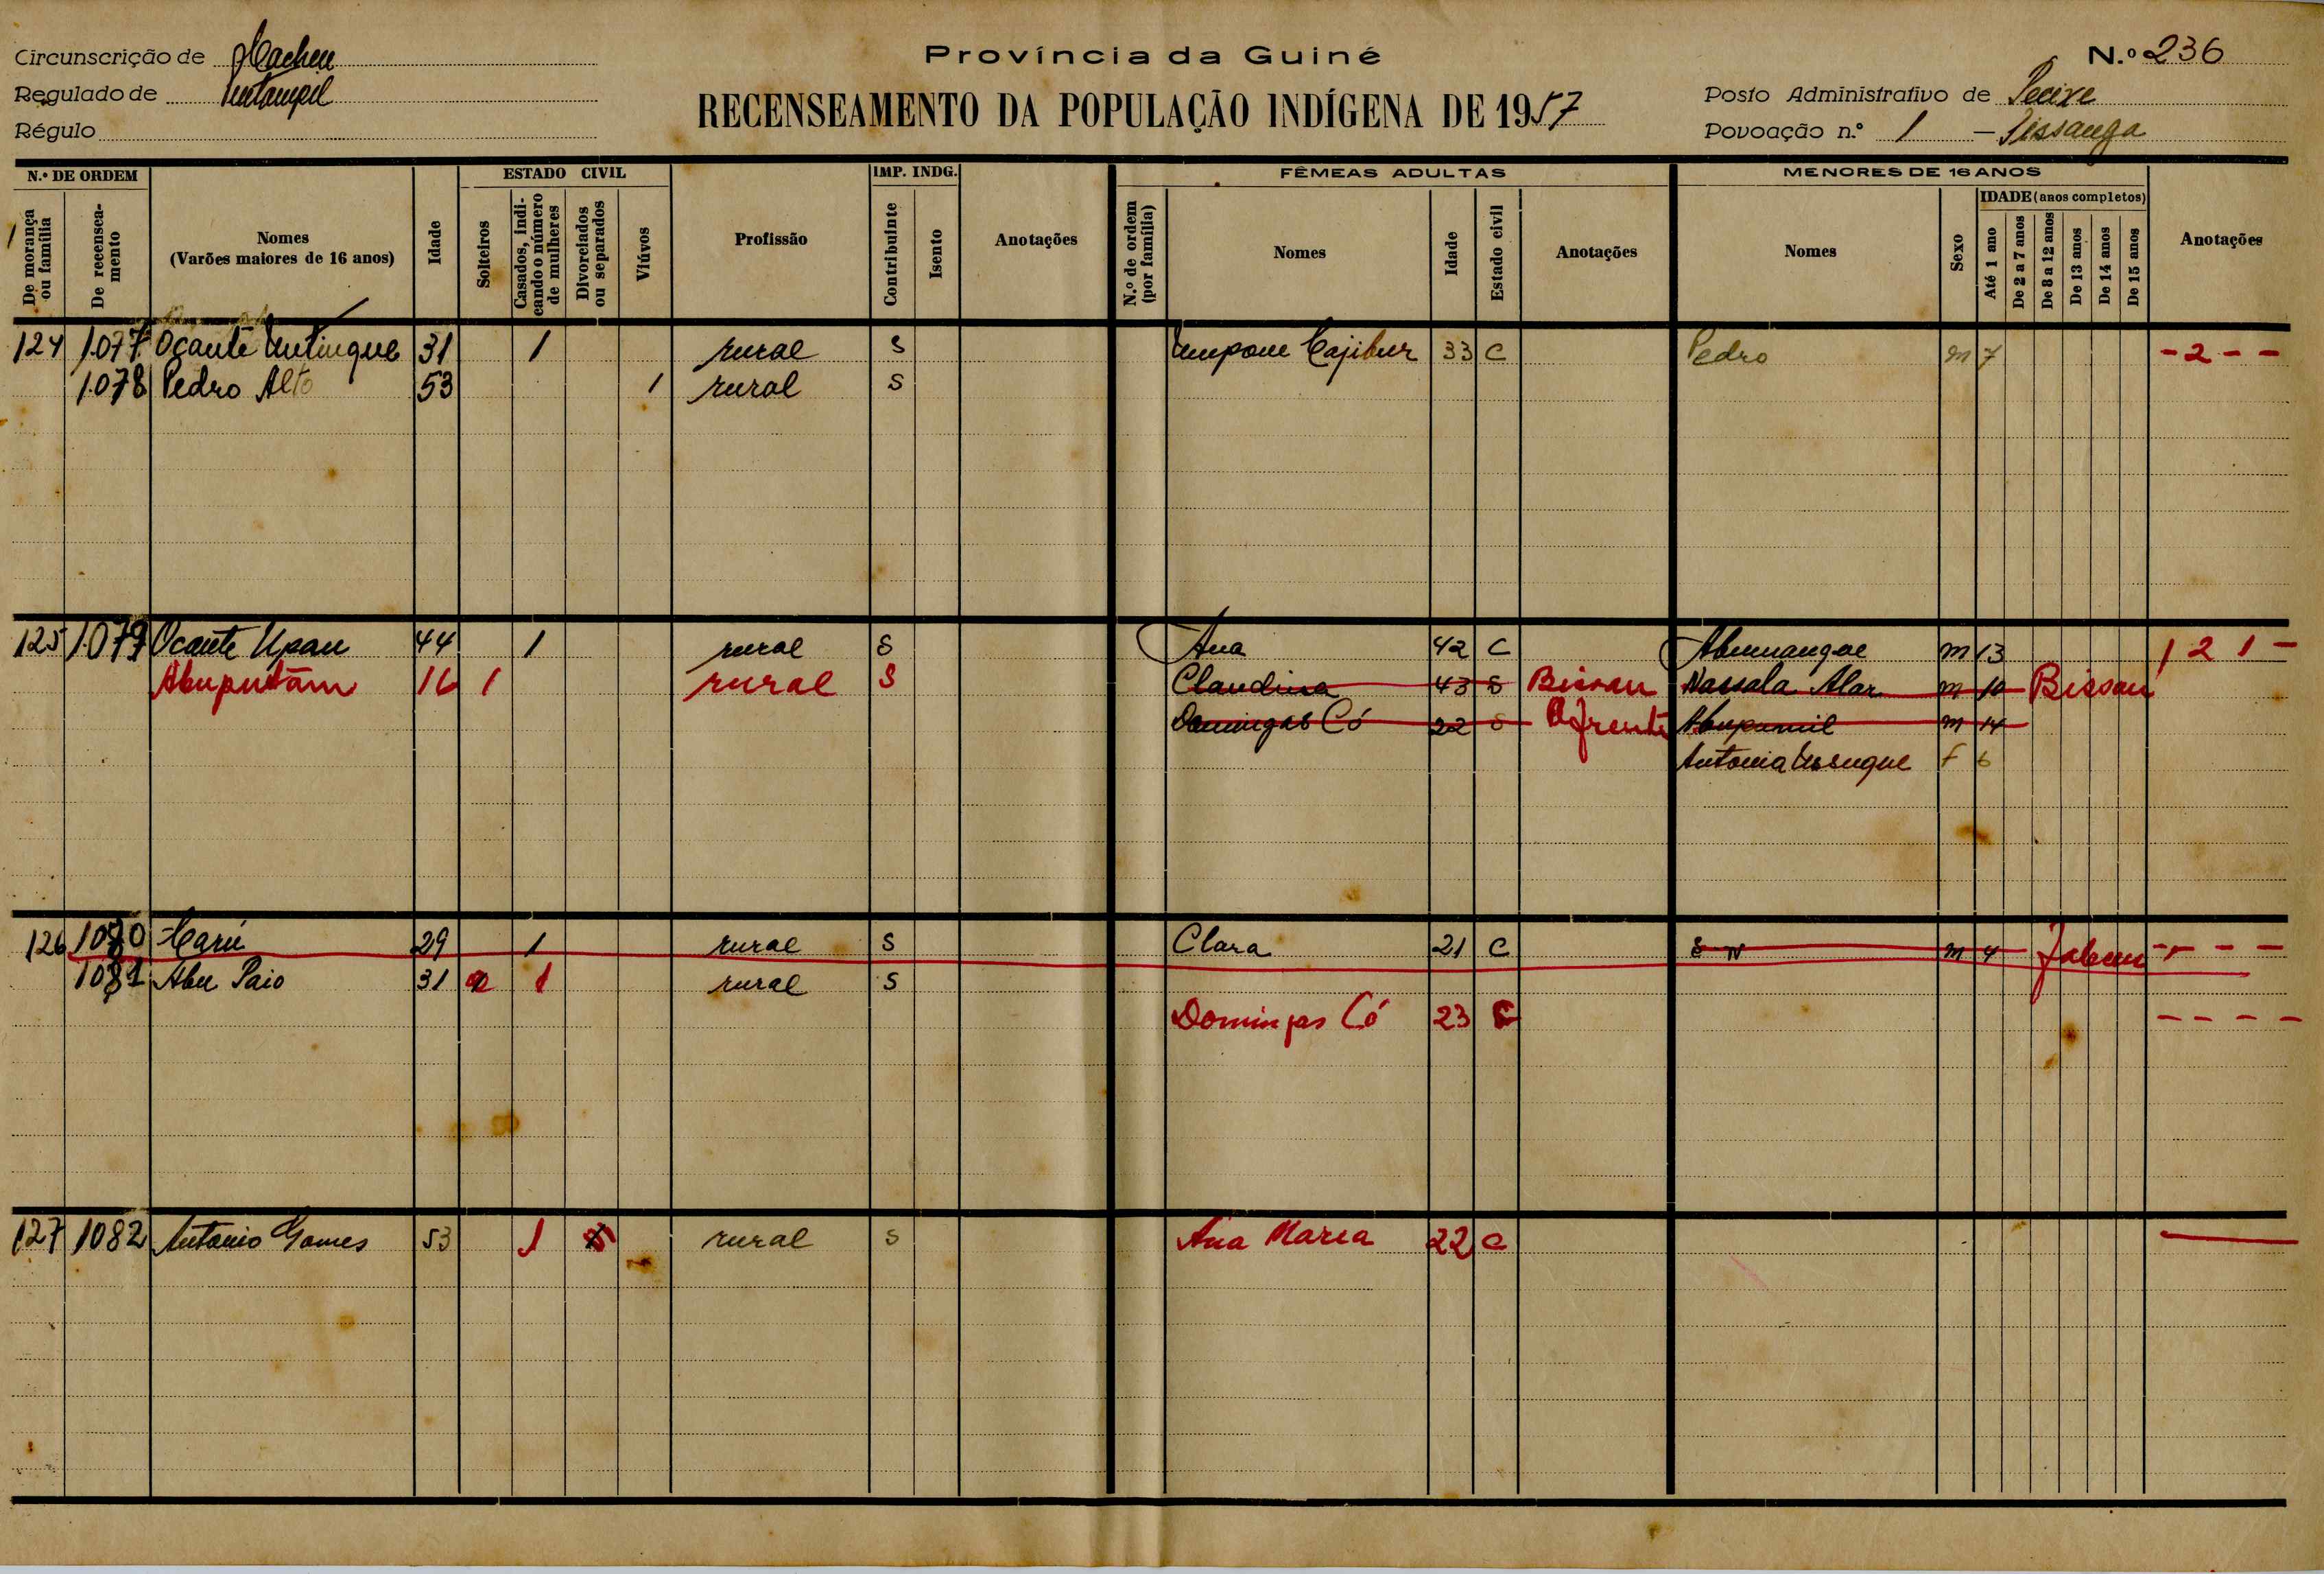 Província da Guiné
N.º 236
Circunscrição de Cacheu
Regulado de
Régulo
RECENSEAMENTO DA POPULAÇÃO INDÍGENA DE 1957
Posto Administrativo de Pecixe
Povoação n.º 1 –
N.º DE ORDEM
De morança ou família
De recenseamento
Nomes
(Varões maiores de 16 anos)
Idade
ESTADO CIVIL
Solteiros
Casados, indicando o número de mulheres
Divorciados ou separados
Viúvos
Profissão
IMP. INDG.
Contribuinte
Isento
Anotações
FÊMEAS ADULTAS
N.º de ordem (por família)
Nomes
Idade
Estado civil
Anotações
MENORES DE 16 ANOS
Nomes
Sexo
IDADE (anos completos)
Até 1 ano
De 2 a 7 anos
De 8 a 12 anos
De 13 anos
De 14 anos
De 15 anos
Anotações
124 1.077 Ocante 31 1 rural S Cajibur 33 C Pedro m 7 - 2 - -
1.078 Pedro Alto 53 1 rural S
125 1.079 Ocante Upau 44 1 rural S Ana 42 C m 13 1 2 1 -
Abuputam 16 1 rural S Claudina 43 S Bissau Nassala Alar m 10 Bissau
Domingas Có 22 S m 14
Antonia f 6
126 1080 29 1 rural S Clara 21 C S N m 4 - - - -
1081 Abu Paio 31 1 rural S
Domingas Có 23 C - - - -
127 1082 Antonio Gomes 53 1 rural S Ana Maria 22 C